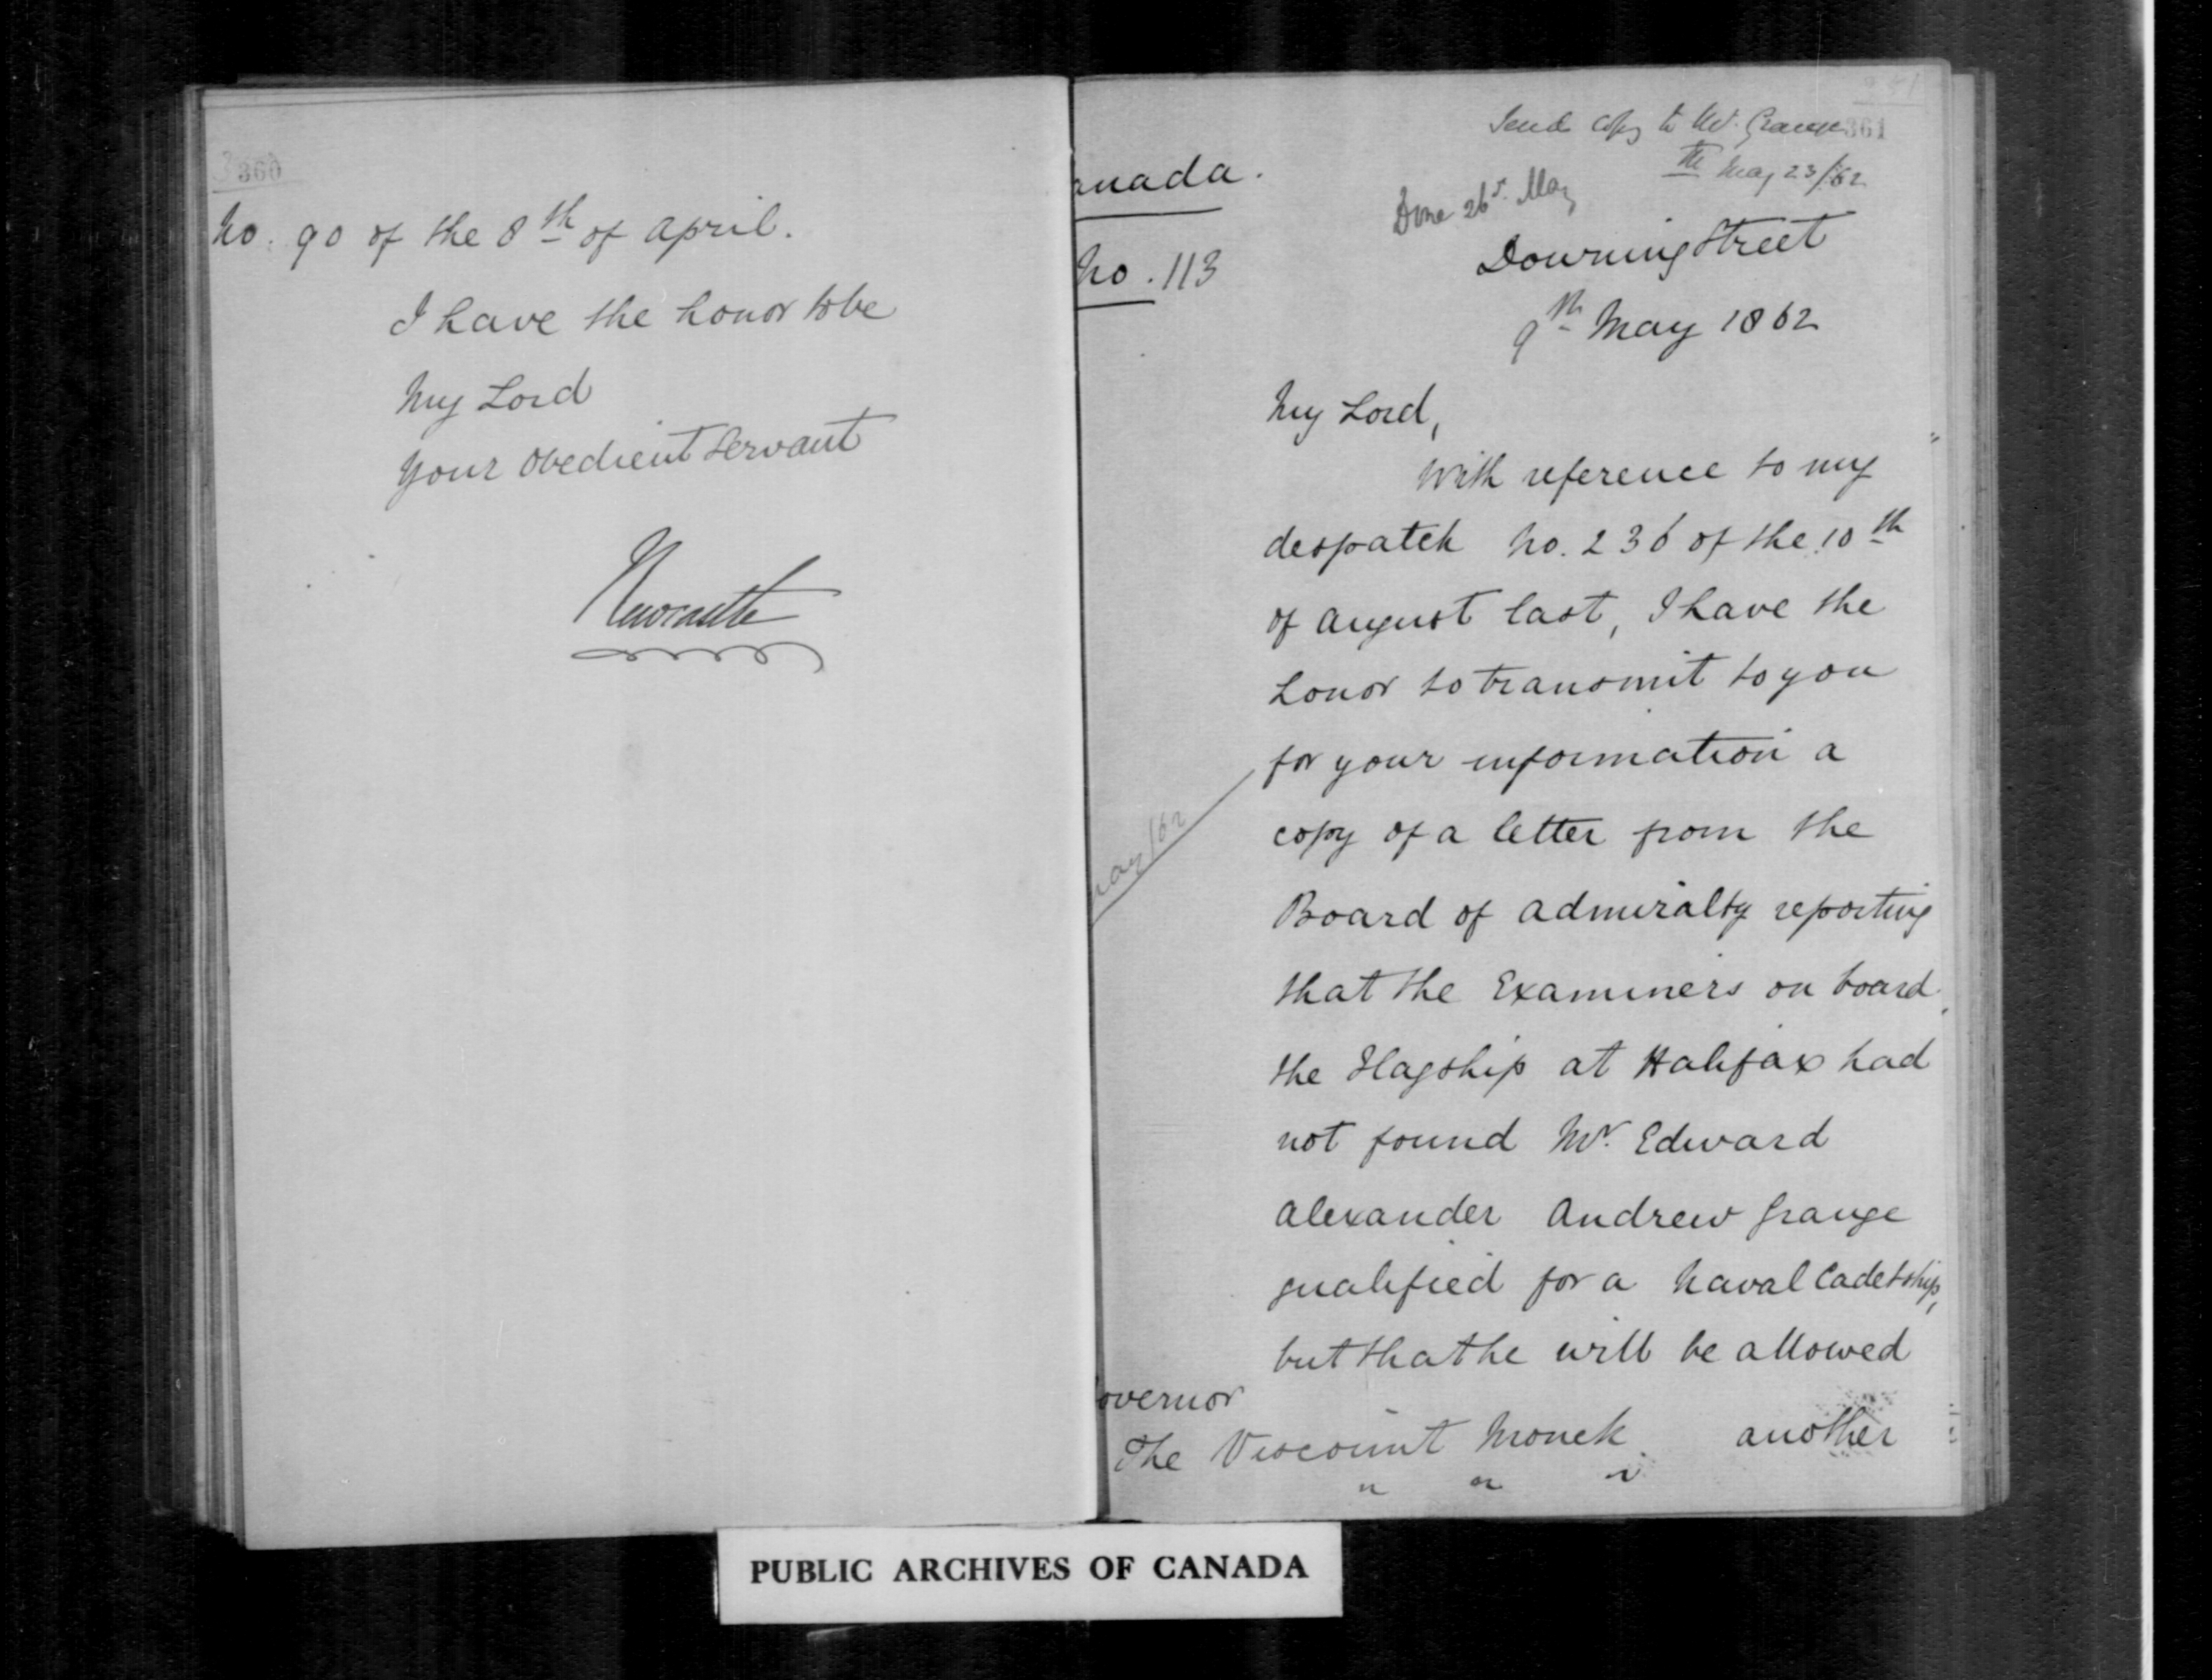 360
No. 90 of the 8th of April.
I have the honor to be
My Lord
Your Obedient Servant
Newcastle
361
Send copy to Mr. Grange
May 23/62
Done 26 May
anada.
No. 113
Downing Street
9th May 1862
My Lord,
With reference to my
despatch No. 236 of the 10th
of August last, I have the
honor to transmit to you
for your information a
copy of a letter from the
Board of Admiralty reporting
that the Examiners on board
the Flagship at Halifax had
not found Mr. Edward
Alexander Andrew Grange
qualified for a Naval Cadetship,
but that he will be allowed
another
ay/62
overnor
The Viscount Monck
" " "
PUBLIC ARCHIVES OF CANADA